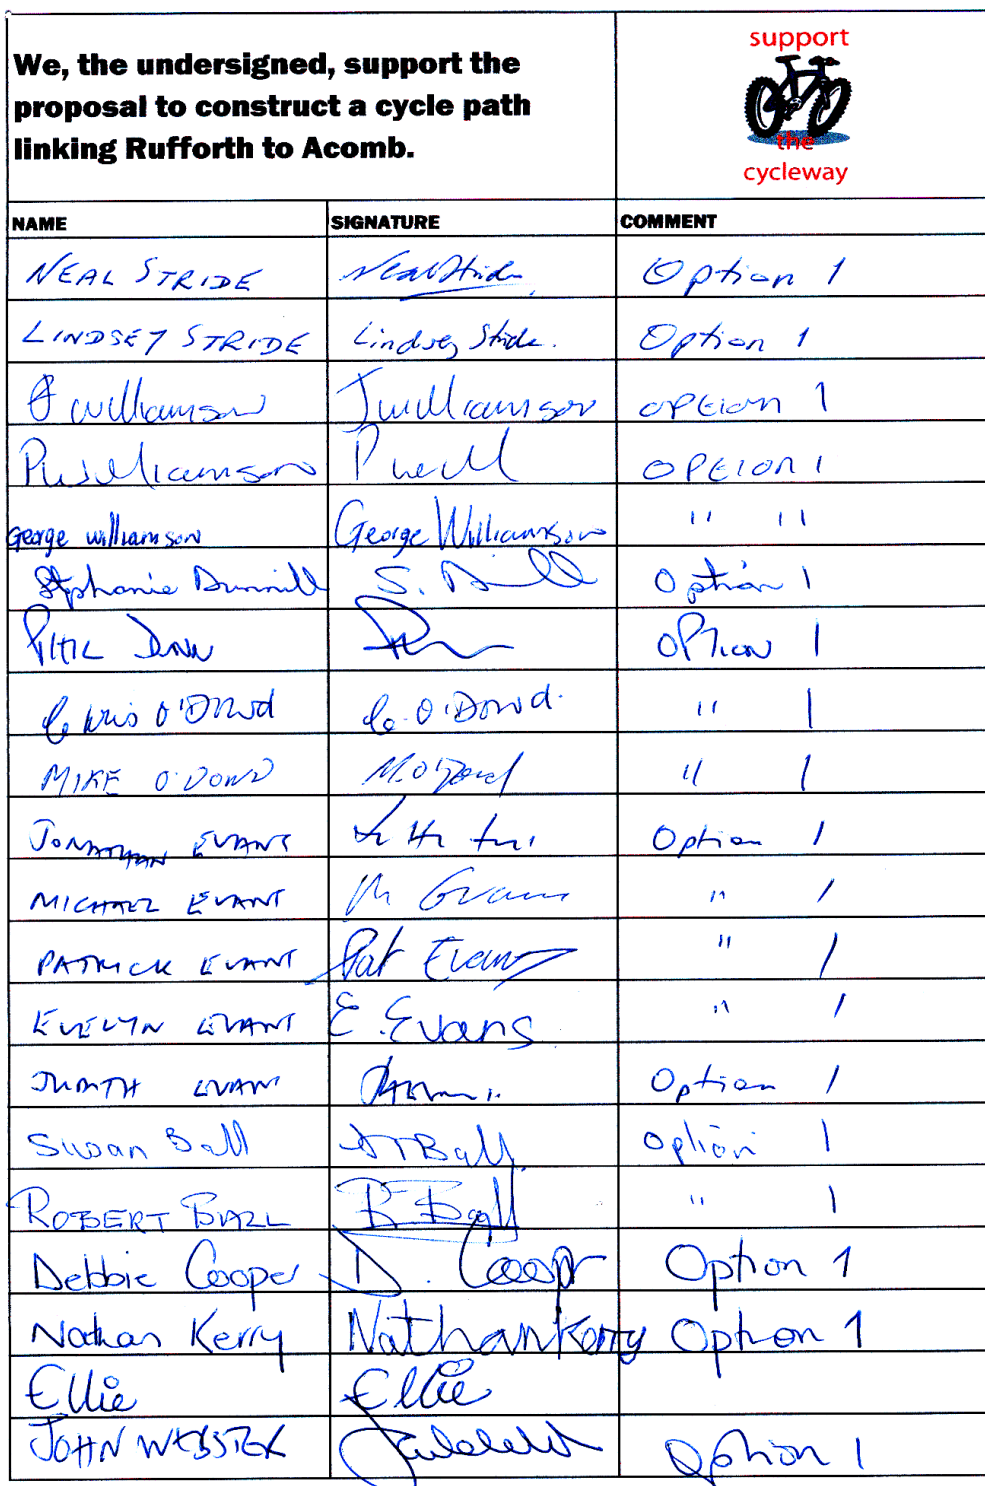 We, the undersigned, support the
proposal to construct a cycle path
linking Rufforth to Acomb.
support
the
cycleway
NAME SIGNATURE COMMENT
NEAL STRIDE Neal Stride Option 1
LINDSEY STRIDE Lindsey Stride. Option 1
J Williamson J Williamson OPtion 1
P Williamson P Will OPtION 1
George Williamson George Williamson " "
Stephanie Dunnill S. Option 1
PHIL DUNN OPTION 1
Chris O'Dowd C. O'Dowd. " 1
MIKE O'DOWD M. O'Dowd " 1
JONATHAN EVANS Option 1
MICHAEL EVANS M Evans " 1
PATRICK EVANS Pat Evans " 1
EVELYN EVANS E. Evans " 1
JUDITH EVANS Option 1
Susan Ball Ball Option 1
ROBERT BALL R Ball " 1
Debbie Cooper D. Cooper Option 1
Nathan Kerry Nathan Kerry Option 1
Ellie Ellie
JOHN WEBSTER Option 1